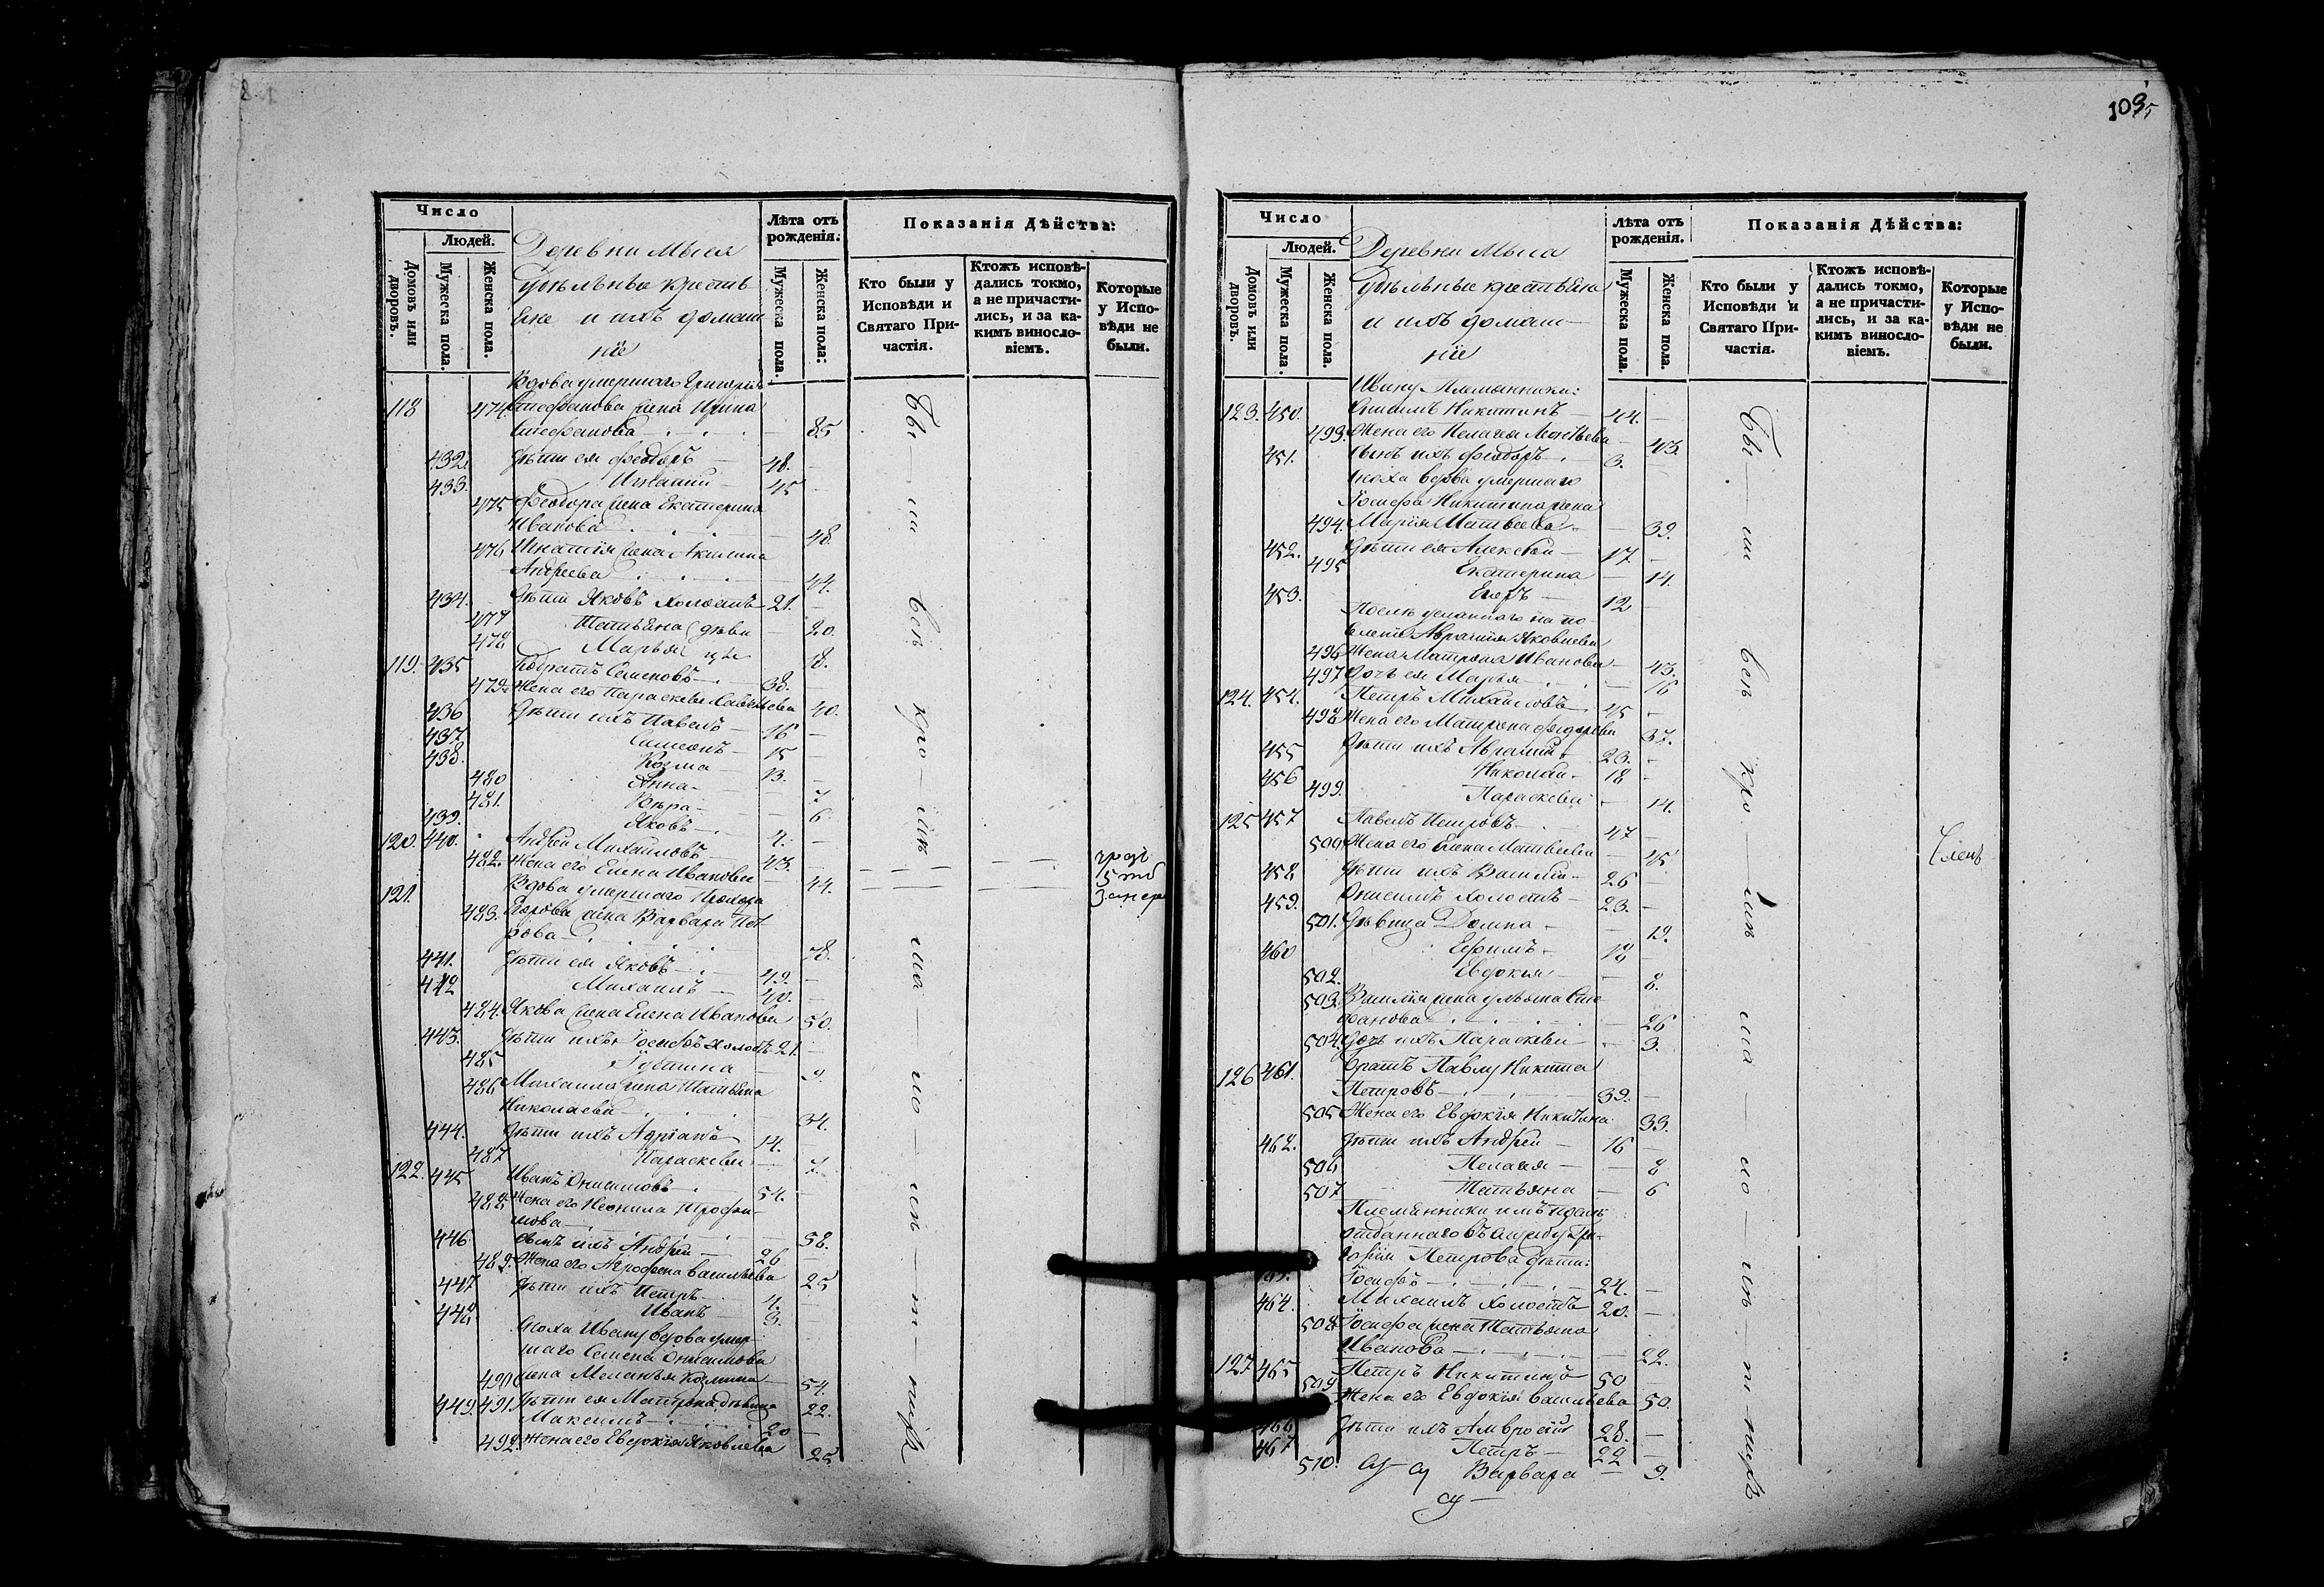 Число
Людей.
Домовъ или дворовъ.
Мужеска пола.
Женска пола.
Деревни Мыса
Удѣльные крестья
не и ихъ домаш
ніе
Лѣта отъ рожденія.
Мужеска пола.
Женска пола:
Показанія Дѣйства:
Кто были у Исповѣди и Святаго Причастія.
Ктожъ исповѣдались токмо, а не причастились, и за какимъ винословіемъ.
Которые у Исповѣди не были.
Вдова умершаго Григорія
118 474. Стефанова жена Ирина
Стефанова 85
432. Дѣти ея Феодоръ 48.
433. Игнатій 45
475 Феодора жена Екатерина
Иванова 48.
476 Игнатія жена Акилина
Андреева 44.
434. Дѣти Яковъ холостъ 21.
477 Татьяна дѣви 20.
478 Марья цы 18.
119. 435 Семеновъ 38.
479. Жена его Параскева Савельева 40.
436 Дѣти ихъ Павелъ 16
437. Симеонъ 15
438. Козма 13.
480 Анна 7
481. Вѣра 6.
439. Яковъ 4.
120. 440. Андрей Михайловъ 43.
482. Жена его Елена Иванова 44.
Вдова умершаго Прохора
121. 483. Егорова жена Варвара Пет
рова 78.
441. Дѣти ея Яковъ 49.
442 Михаилъ 40.
484. Якова жена Елена Иванова 50.
443. Дѣти ихъ Іосифъ холостъ 21.
485 9.
486 Михаила жена Татьяна
Николаева 34.
444. Дѣти ихъ Адріанъ 14.
487 Параскева 7.
122. 445 Иванъ Онисимовъ 54.
488. Жена его Неонила Трофи-
мова 58.
446 Сынъ ихъ Андрей 26
489. Жена его Агрофена Васильева 25
447 Дѣти ихъ Петръ 4.
448. Иванъ 3.
Сноха Ивану вдова умер-
шаго Семена Онисимова
490 жена Меланья Козмина 54.
449. 491. Дѣти ея Матрона дѣвица 22.
Максимъ 20
492. Жена его Евдокія Яковлева 25
Бы — ли всѣ кро — мѣ ма — ло — лѣ — т — нихъ
103
Число
Людей.
Домовъ или дворовъ.
Мужеска пола.
Женска пола.
Деревни Мыса
Удѣльные крестьяне
и ихъ домаш—
ніе
Лѣта отъ рожденія.
Мужеска пола.
Женска пола.
Показанія Дѣйства:
Кто были у Исповѣди и Святаго Причастія.
Ктожъ исповѣдались токмо, а не причастились, и за какимъ винословіемъ.
Которые у Исповѣди не были.
Ивану Племянники:
123. 450. Онисимъ Никитинъ 44.
493. Жена его Пелагея Леонтьева 43.
451. Сынъ ихъ Феодоръ 3.
Сноха вдова умершаго
Іосифа Никитина жена
494. Марія Матвеева 39.
452. Дѣти ея Алексѣй 17.
495 Екатерина 14.
453. Егоръ 12
Послѣ усланнаго на по
селеніе Авраамія Яковлева
496 Жена Матрона Иванова 43.
497 Дочь ея Марья 16
124. 454. Петръ Михайловъ 45
498. Жена его Матрона Федорова 37.
455 Дѣти ихъ Аврамій 23.
456 Николай 18
499. Параскева 14.
125 457 Павелъ Петровъ 47
500 Жена его Елена Матвеева 45
458 Дѣти ихъ Василій 26
459. Онисимъ холостъ 23.
501. Дѣвица Домна 19.
460 Ефимъ 18
502. Евдокія 8.
503. Василія жена Сте
фанова 26
504. Дочь ихъ Параскева 3.
126 461. Братъ Павлу Никита
Петровъ 39.
505 Жена его Евдокія Никитина 39.
462. Дѣти ихъ Андрей 16
506 Пелагія 8
507 Татьяна 6
Племянники имъ
отданнаго въ службу Гри-
горія Петрова дѣти:
Іосифъ 24.
464. Михаилъ холостъ 20.
508 Іосифа жена Татьяна
Иванова 22.
127 465 Петръ Никитинъ 50
509 Жена его Евдокія Васильева 50.
466 Дѣти ихъ Амвросій 28.
467 Петръ 22
510. Варвара 9.
Бы — ли всѣ кро — мѣ ма — ло — лѣ — т — нихъ